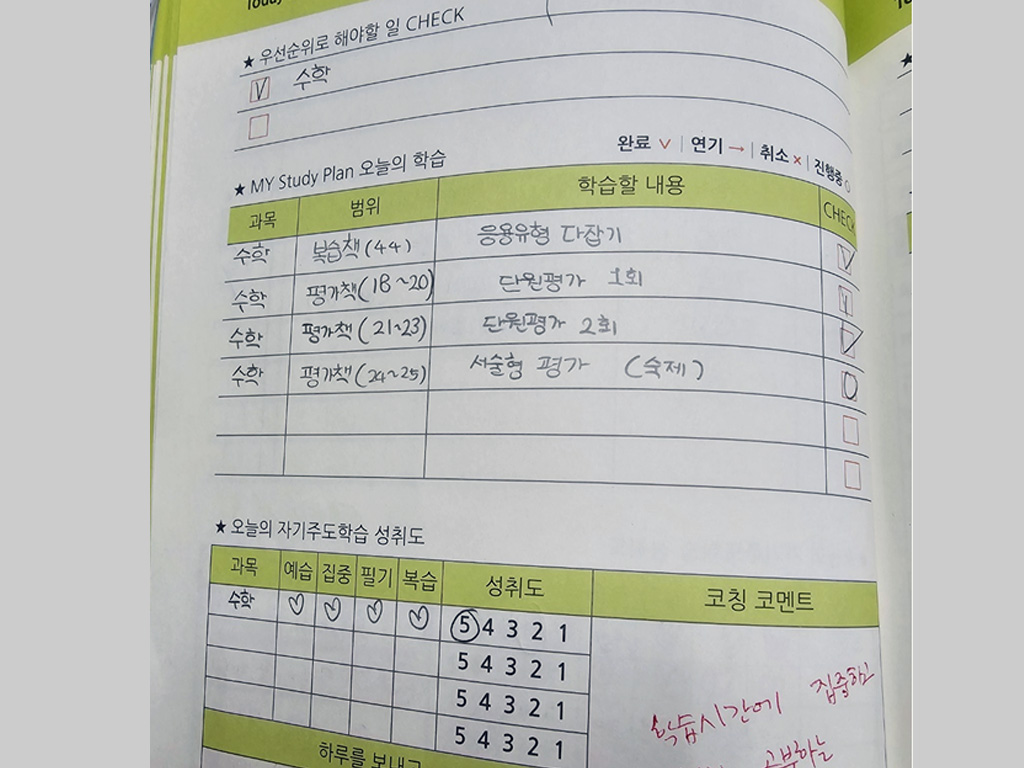 Today
★ 우선순위로 해야할 일 CHECK
V 수학
완료 V | 연기 → | 취소 × | 진행중 ○
★ MY Study Plan 오늘의 학습
과목 범위 학습할 내용 CHECK
수학 복습책(44) 응용유형 다잡기 V
수학 평가책(18~20) 단원평가 1회 V
수학 평가책(21~23) 단원평가 2회 V
수학 평가책(24~25) 서술형 평가 (숙제) O
★ 오늘의 자기주도학습 성취도
과목 예습 집중 필기 복습 성취도 코칭 코멘트
수학 ♡ ♡ ♡ ♡ 5 4 3 2 1
5 4 3 2 1
5 4 3 2 1
5 4 3 2 1
학습시간에 집중하고
공부하는
하루를 보내고